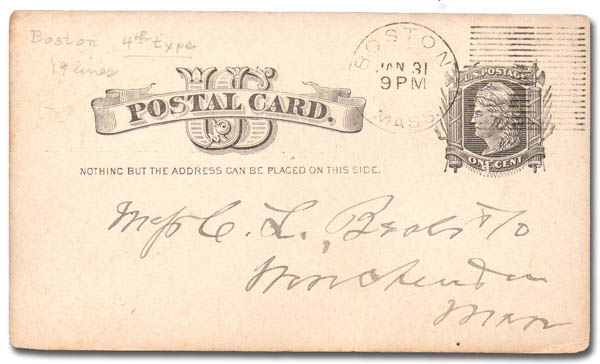 Boston 4th type
19 lines
US
POSTAL CARD.
BOSTON
JAN 31
9 PM
MASS.
U.S. POSTAGE
ONE CENT
NOTHING BUT THE ADDRESS CAN BE PLACED ON THIS SIDE.
Mess C. L. Beals &/o
Winchendon
Mass